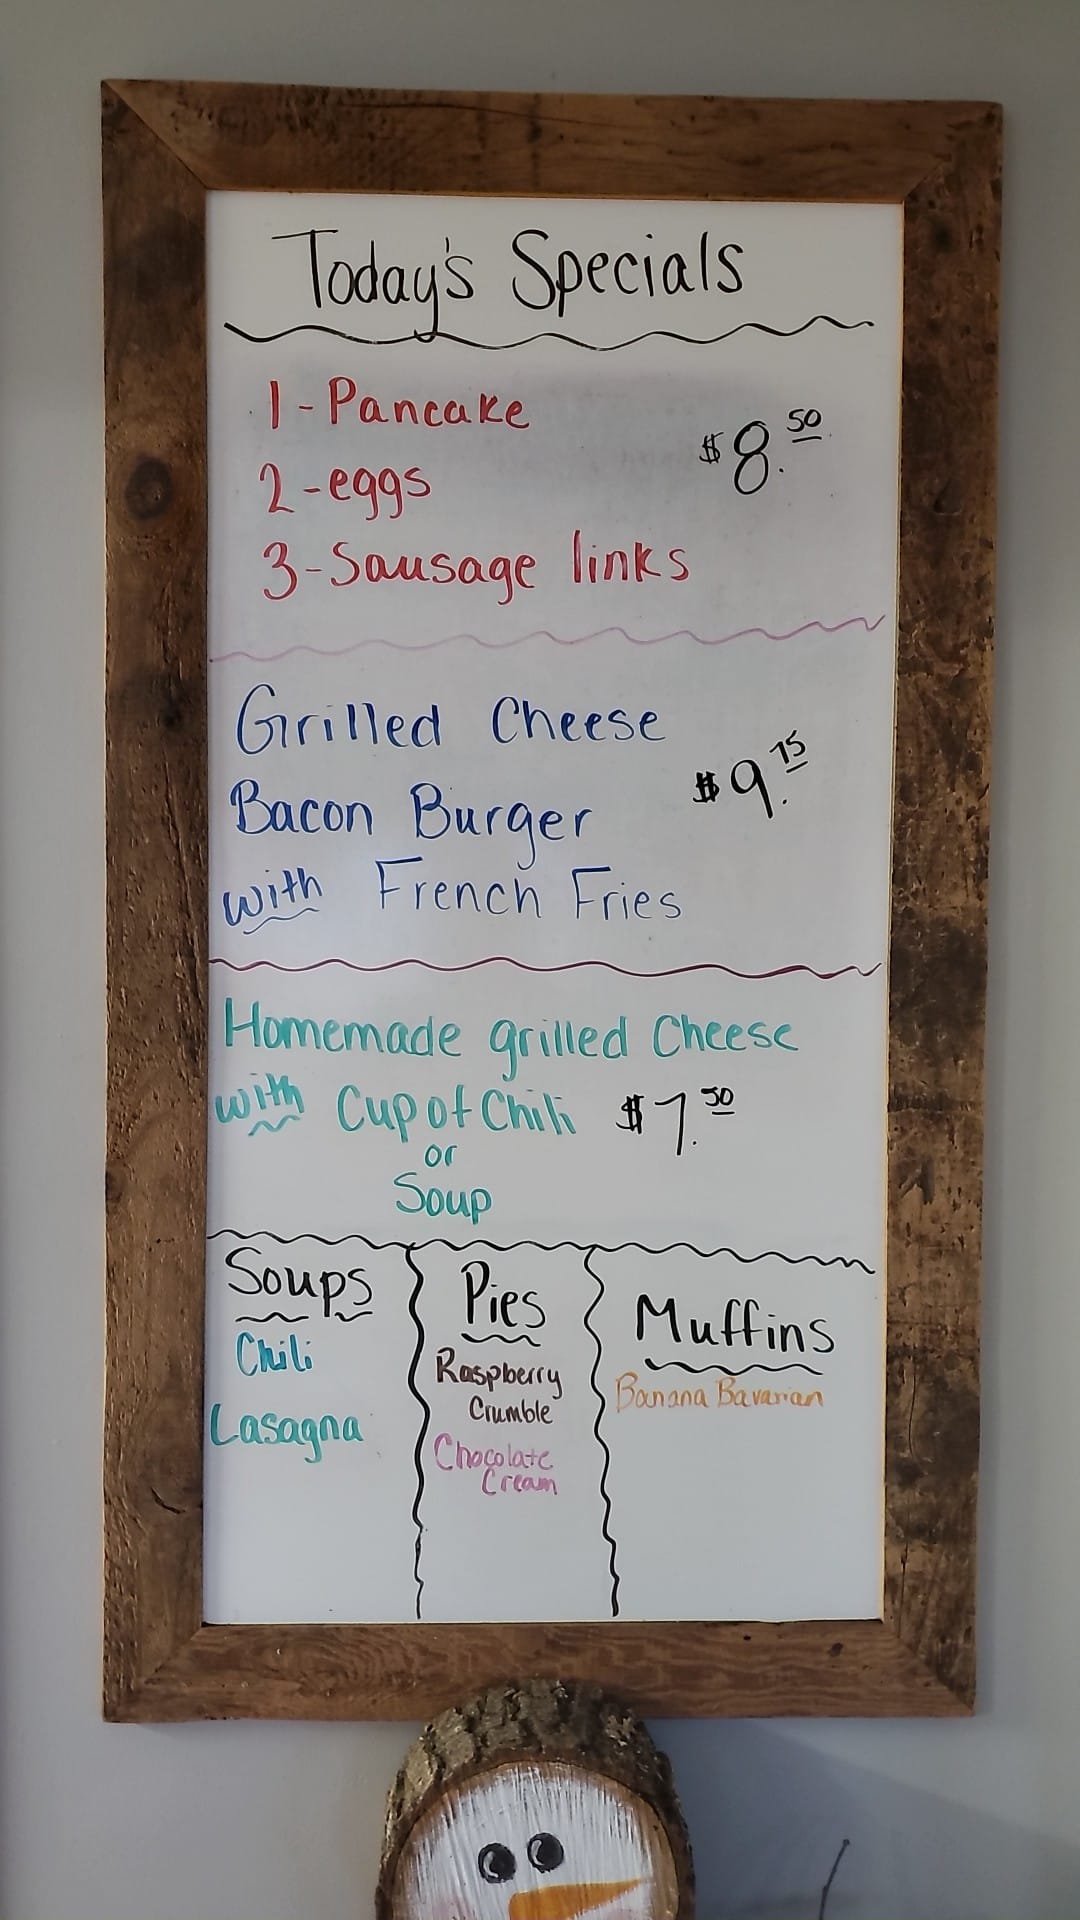 Today's Specials
1-Pancake
$8.50
2-eggs
3-Sausage links
Grilled Cheese
$9.75
Bacon Burger
with French Fries
Homemade grilled Cheese
with Cup of Chili $7.50
or
Soup
Soups
Chili
Lasagna
Pies
Raspberry
Crumble
Chocolate
Cream
Muffins
Banana Bavarian